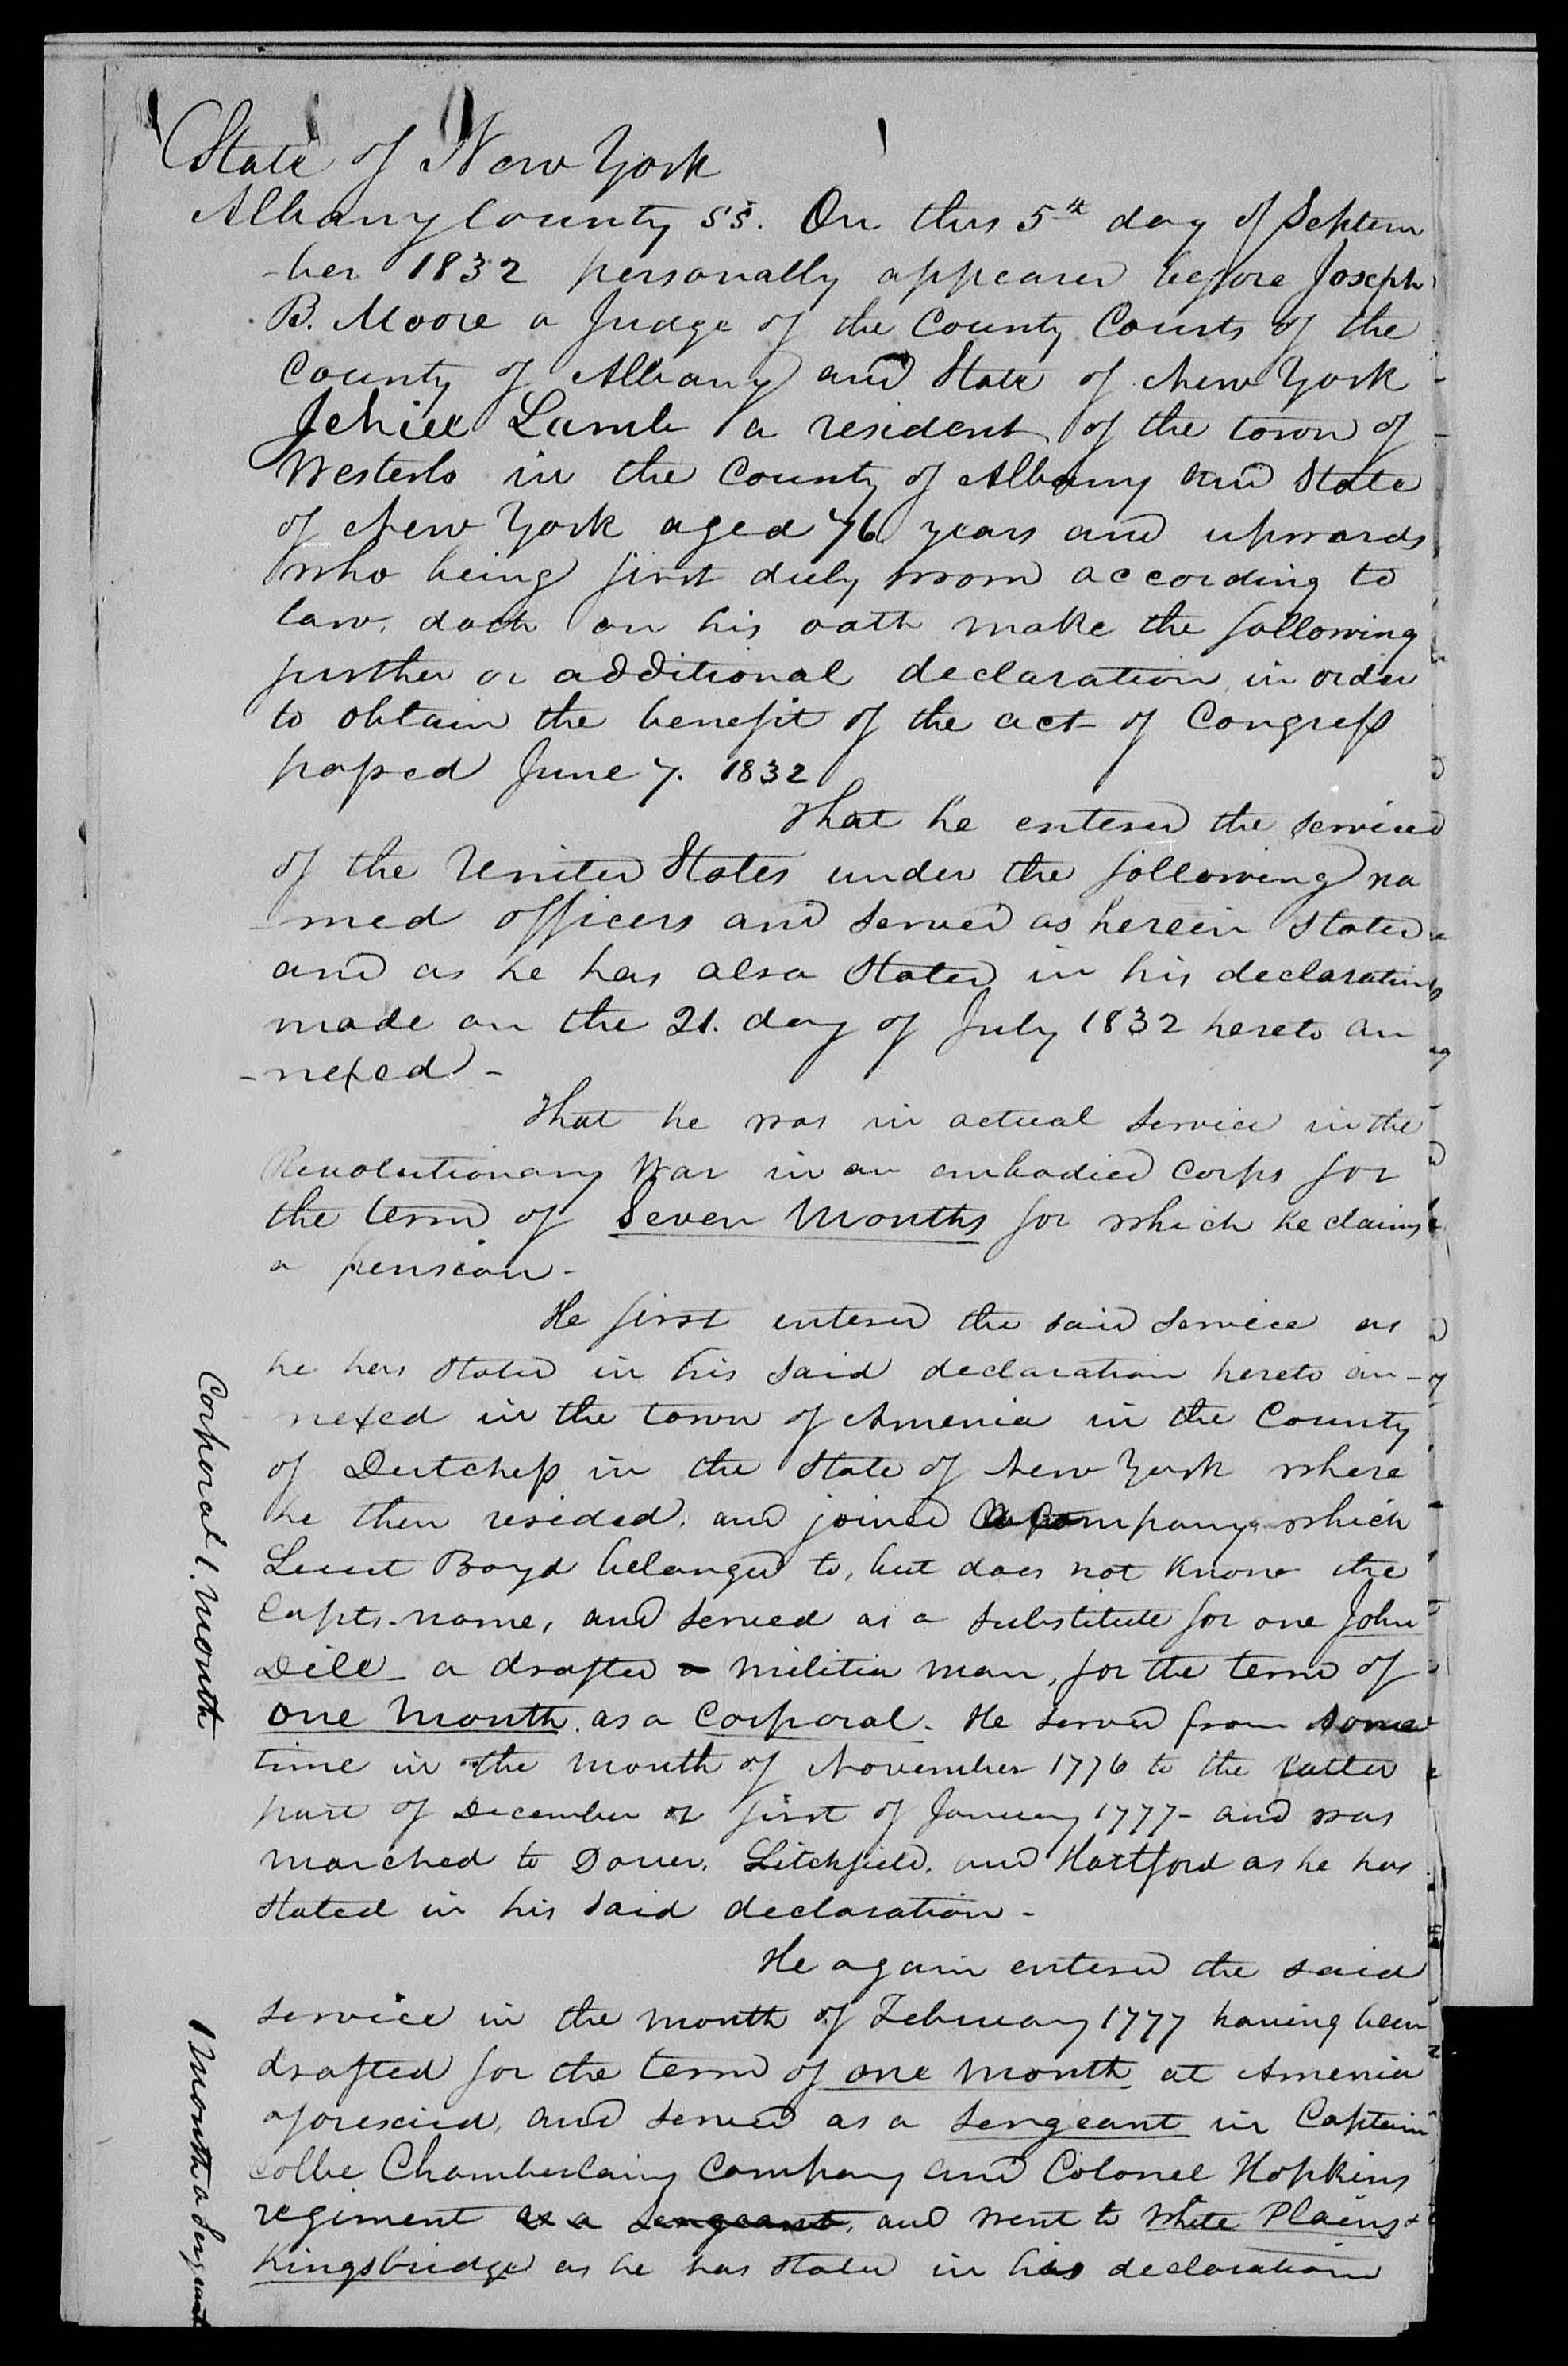 State of New York
Albany County ss. On this 5th day of Septem
-ber 1832 personally appeared before Joseph
B. Moore a Judge of the County Courts of the
County of Albany and State of New York
Jehiel Lamb a resident of the town of
Westerlo in the County of Albany and State
of New York aged 76 years and upwards
who being first duly sworn according to
law, doth on his oath make the following
further or additional declaration in order
to obtain the benefit of the act of Congress
passed June 7. 1832
That he entered the service
of the United States under the following na
-med officers and served as herein stated
and as he has also stated in his declaration
made on the 21. day of July 1832 hereto an
-nexed -
That he was in actual service in the
Revolutionary War in an embodied corps for
the term of Seven Months for which he claims
a pension -
He first entered the said service as
he has stated in his said declaration hereto an-
nexed in the town of Amenia in the County
of Dutchess in the State of New York where
he then resided, and joined a company which
Lieut Boyd belonged to, but does not know the
Capts. name, and served as a substitute for one John
Dill - a drafted militia man, for the term of
one Month as a Corporal. He served from some
time in the month of November 1776 to the latter
part of December or first of January 1777 - and was
marched to Dover, Litchfield, and Hartford as he has
stated in his said declaration -
He again entered the said
service in the month of February 1777 having been
drafted for the term of one month at Amenia
aforesaid, and served as a Sergeant in Captain
Colbe Chamberlains Company and Colonel Hopkins
regiment as a Sergeant, and went to White Plains &
Kingsbridge as he has stated in his declaration
Corporal 1. Month
1 Month a Sergeant